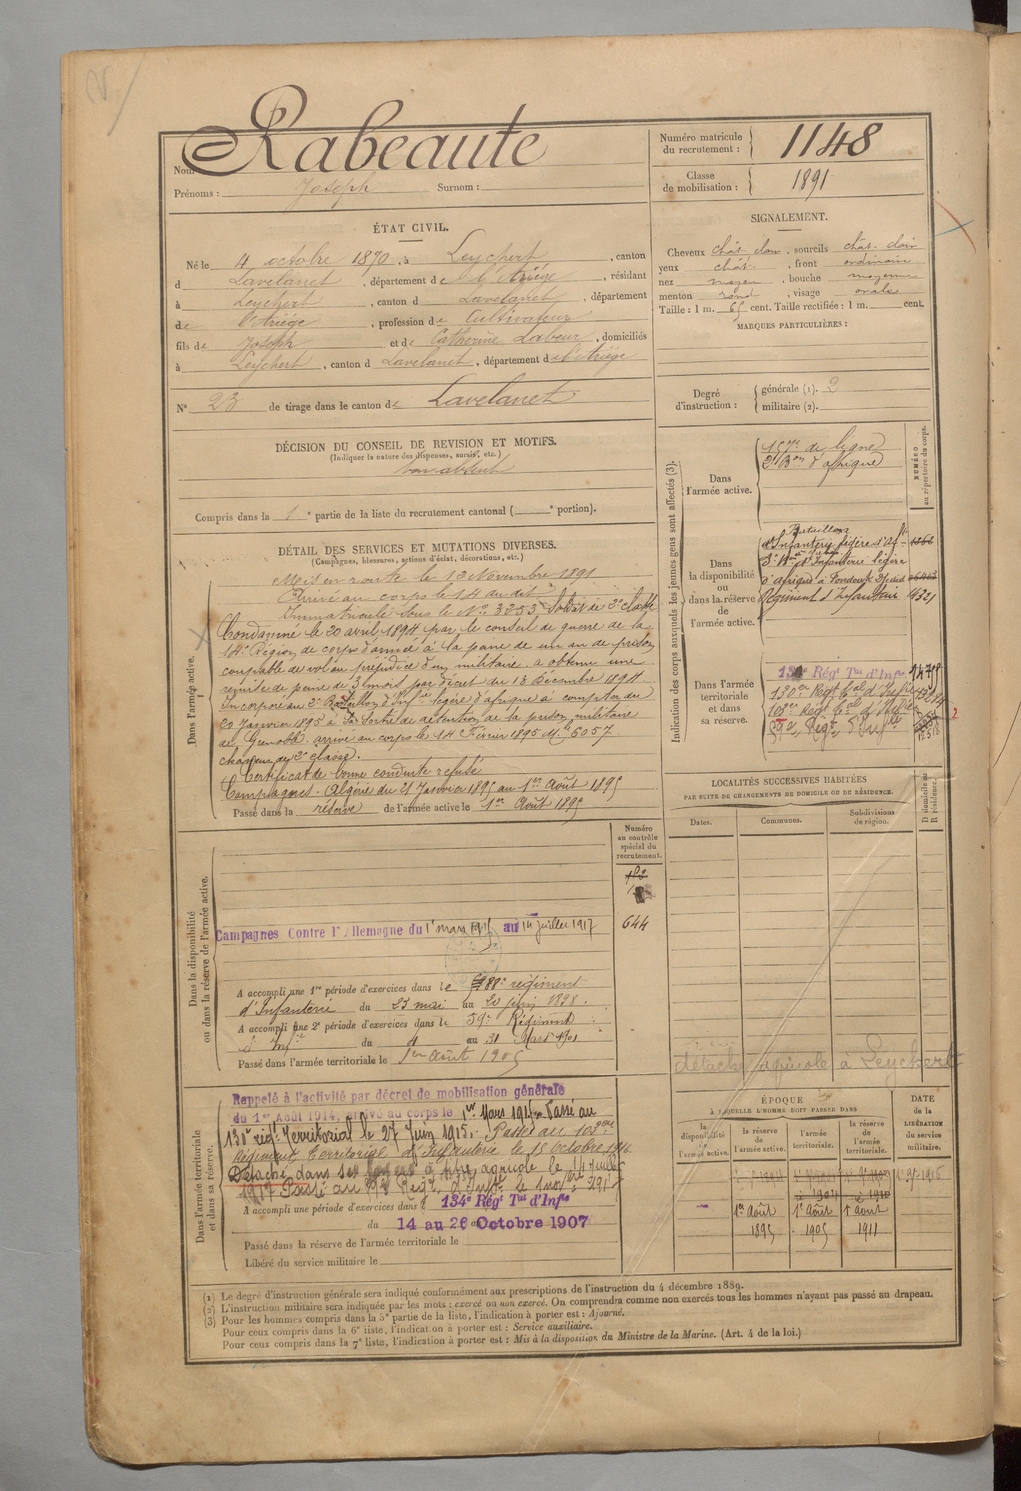 Nom Rabeaute
Prénoms : Joseph Surnom :
Numéro matricule du recrutement : 1148
Classe de mobilisation : 1891
ÉTAT CIVIL.
Né le 4 octobre 1870, à Leychert, canton
d Lavelanet, département de l'Ariége, résidant
à Leychert, canton d Lavelanet, département
de l'Ariége, profession de Cultivateur
fils de Joseph et de Catherine Labeur, domiciliés
à Leychert, canton d Lavelanet, département de l'Ariége
N° 23 de tirage dans le canton de Lavelanet
SIGNALEMENT.
Cheveux chât. clair, sourcils chât. clair
yeux chât., front ordinaire
nez moyen, bouche moyenne
menton rond, visage ovale
Taille : 1 m. 65 cent. Taille rectifiée : 1 m. cent.
MARQUES PARTICULIÈRES :
Degré d'instruction : générale (1). 2
militaire (2).
DÉCISION DU CONSEIL DE REVISION ET MOTIFS.
(Indiquer la nature des dispenses, sursis, etc.)
bon absent
Compris dans la 1e partie de la liste du recrutement cantonal ( e portion).
DÉTAIL DES SERVICES ET MUTATIONS DIVERSES.
(Campagnes, blessures, actions d'éclat, décorations, etc.)
Dans l'armée active.
Mis en route le 13 Novembre 1891
Arrivé au corps le 14 au dit
Immatriculé sous le N° 3253 Soldat de 2e classe
Condamné le 20 avril 1894 par le conseil de guerre de la
14e Région de corps d'armée à la peine de un an de prison
coupable de vol au préjudice d'un militaire. a obtenu une
remise de peine de 3 mois par décret du 18 Décembre 1894
Incorporé au 2e Bataillon d'Inf.ie légère d'afrique à compter du
20 Janvier 1895 à sa sortie de détention de la prison militaire
de Grenoble. arrivé au corps le 14 Février 1895 Mle 6057
chasseur de 2e classe.
Certificat de bonne conduite refusé
Campagnes. Algérie du 21 Janvier 1895 au 1er Août 1895
Passé dans la réserve de l'armée active le 1er Août 1895
Indication des corps auxquels les jeunes gens sont affectés (3).
NUMÉRO au répertoire du corps.
Dans l'armée active.
157e de ligne
2e Bon d'afrique
Dans la disponibilité ou dans la réserve de l'armée active.
Bataillon
d'Infanterie légère d'Af
d'Infanterie légère
d'afrique à
Régiment d'Infanterie
Dans l'armée territoriale et dans sa réserve.
134e Régt Tal d'Infie
130e Régt Tal d'Infie
103e Régt Tal d'Infie
59e Régt d'Infie
LOCALITÉS SUCCESSIVES HABITÉES
PAR SUITE DE CHANGEMENTS DE DOMICILE OU DE RÉSIDENCE.
Dates. Communes. Subdivisions de région. D domicile ou R résidence.
Numéro au contrôle spécial du recrutement.
644
Dans la disponibilité ou dans la réserve de l'armée active.
Campagnes Contre l'Allemagne du 1er mars 1915 au 14 juillet 1917
A accompli une 1re période d'exercices dans le 88e régiment
d'Infanterie du 23 mai au 20 juin 1898.
A accompli une 2e période d'exercices dans le 59e Régiment
d'Infie du 4 au 31 Mars 1901
Passé dans l'armée territoriale le 1er Août 1905
détaché agricole à Leychert
Dans l'armée territoriale et dans sa réserve.
Rappelé à l'activité par décret de mobilisation générale
du 1er Août 1914, arrivé au corps le 1er Mars 1915. Passé au
130e régt Territorial le 27 Juin 1915. Passé au 103ème
Régiment Territorial d'Infanterie le 15 octobre 1916.
Détaché dans ses foyers à titre agricole le 14 juillet
1917 Passé au 59e Régt d'Inftie le 1er
A accompli une période d'exercices dans le 134e Régt Tal d'Infie
du 14 au 26 Octobre 1907
Passé dans la réserve de l'armée territoriale le
Libéré du service militaire le
ÉPOQUE
À LAQUELLE L'HOMME DOIT PASSER DANS
la disponibilité de l'armée active. la réserve de l'armée active. l'armée territoriale. la réserve de l'armée territoriale.
DATE de la LIBÉRATION du service militaire.
1er Août 1895 1er Août 1905 1er Août 1911
(1) Le degré d'instruction générale sera indiqué conformément aux prescriptions de l'instruction du 4 décembre 1889.
(2) L'instruction militaire sera indiquée par les mots : exercé ou non exercé. On comprendra comme non exercés tous les hommes n'ayant pas passé au drapeau.
(3) Pour les hommes compris dans la 5e partie de la liste, l'indication à porter est : Ajourné.
Pour ceux compris dans la 6e liste, l'indication à porter est : Service auxiliaire.
Pour ceux compris dans la 7e liste, l'indication à porter est : Mis à la disposition du Ministre de la Marine. (Art. 4 de la loi.)